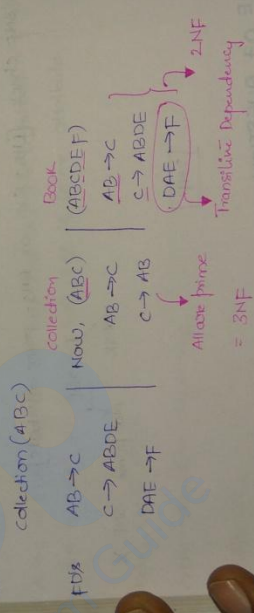 Collection (ABC)
FD's
AB → C
C → ABDE
DAE → F
Collection
Now, (ABC)
AB → C
C → AB
All are prime
= 3NF
Book
(ABCDEF)
AB → C
C → ABDE
DAE → F
2NF
Transitive Dependency
Guide